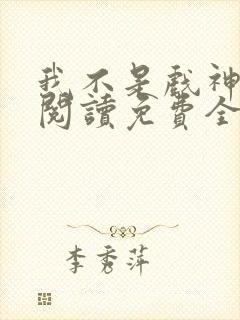 我不是戲神
閱讀免費全
李秀萍